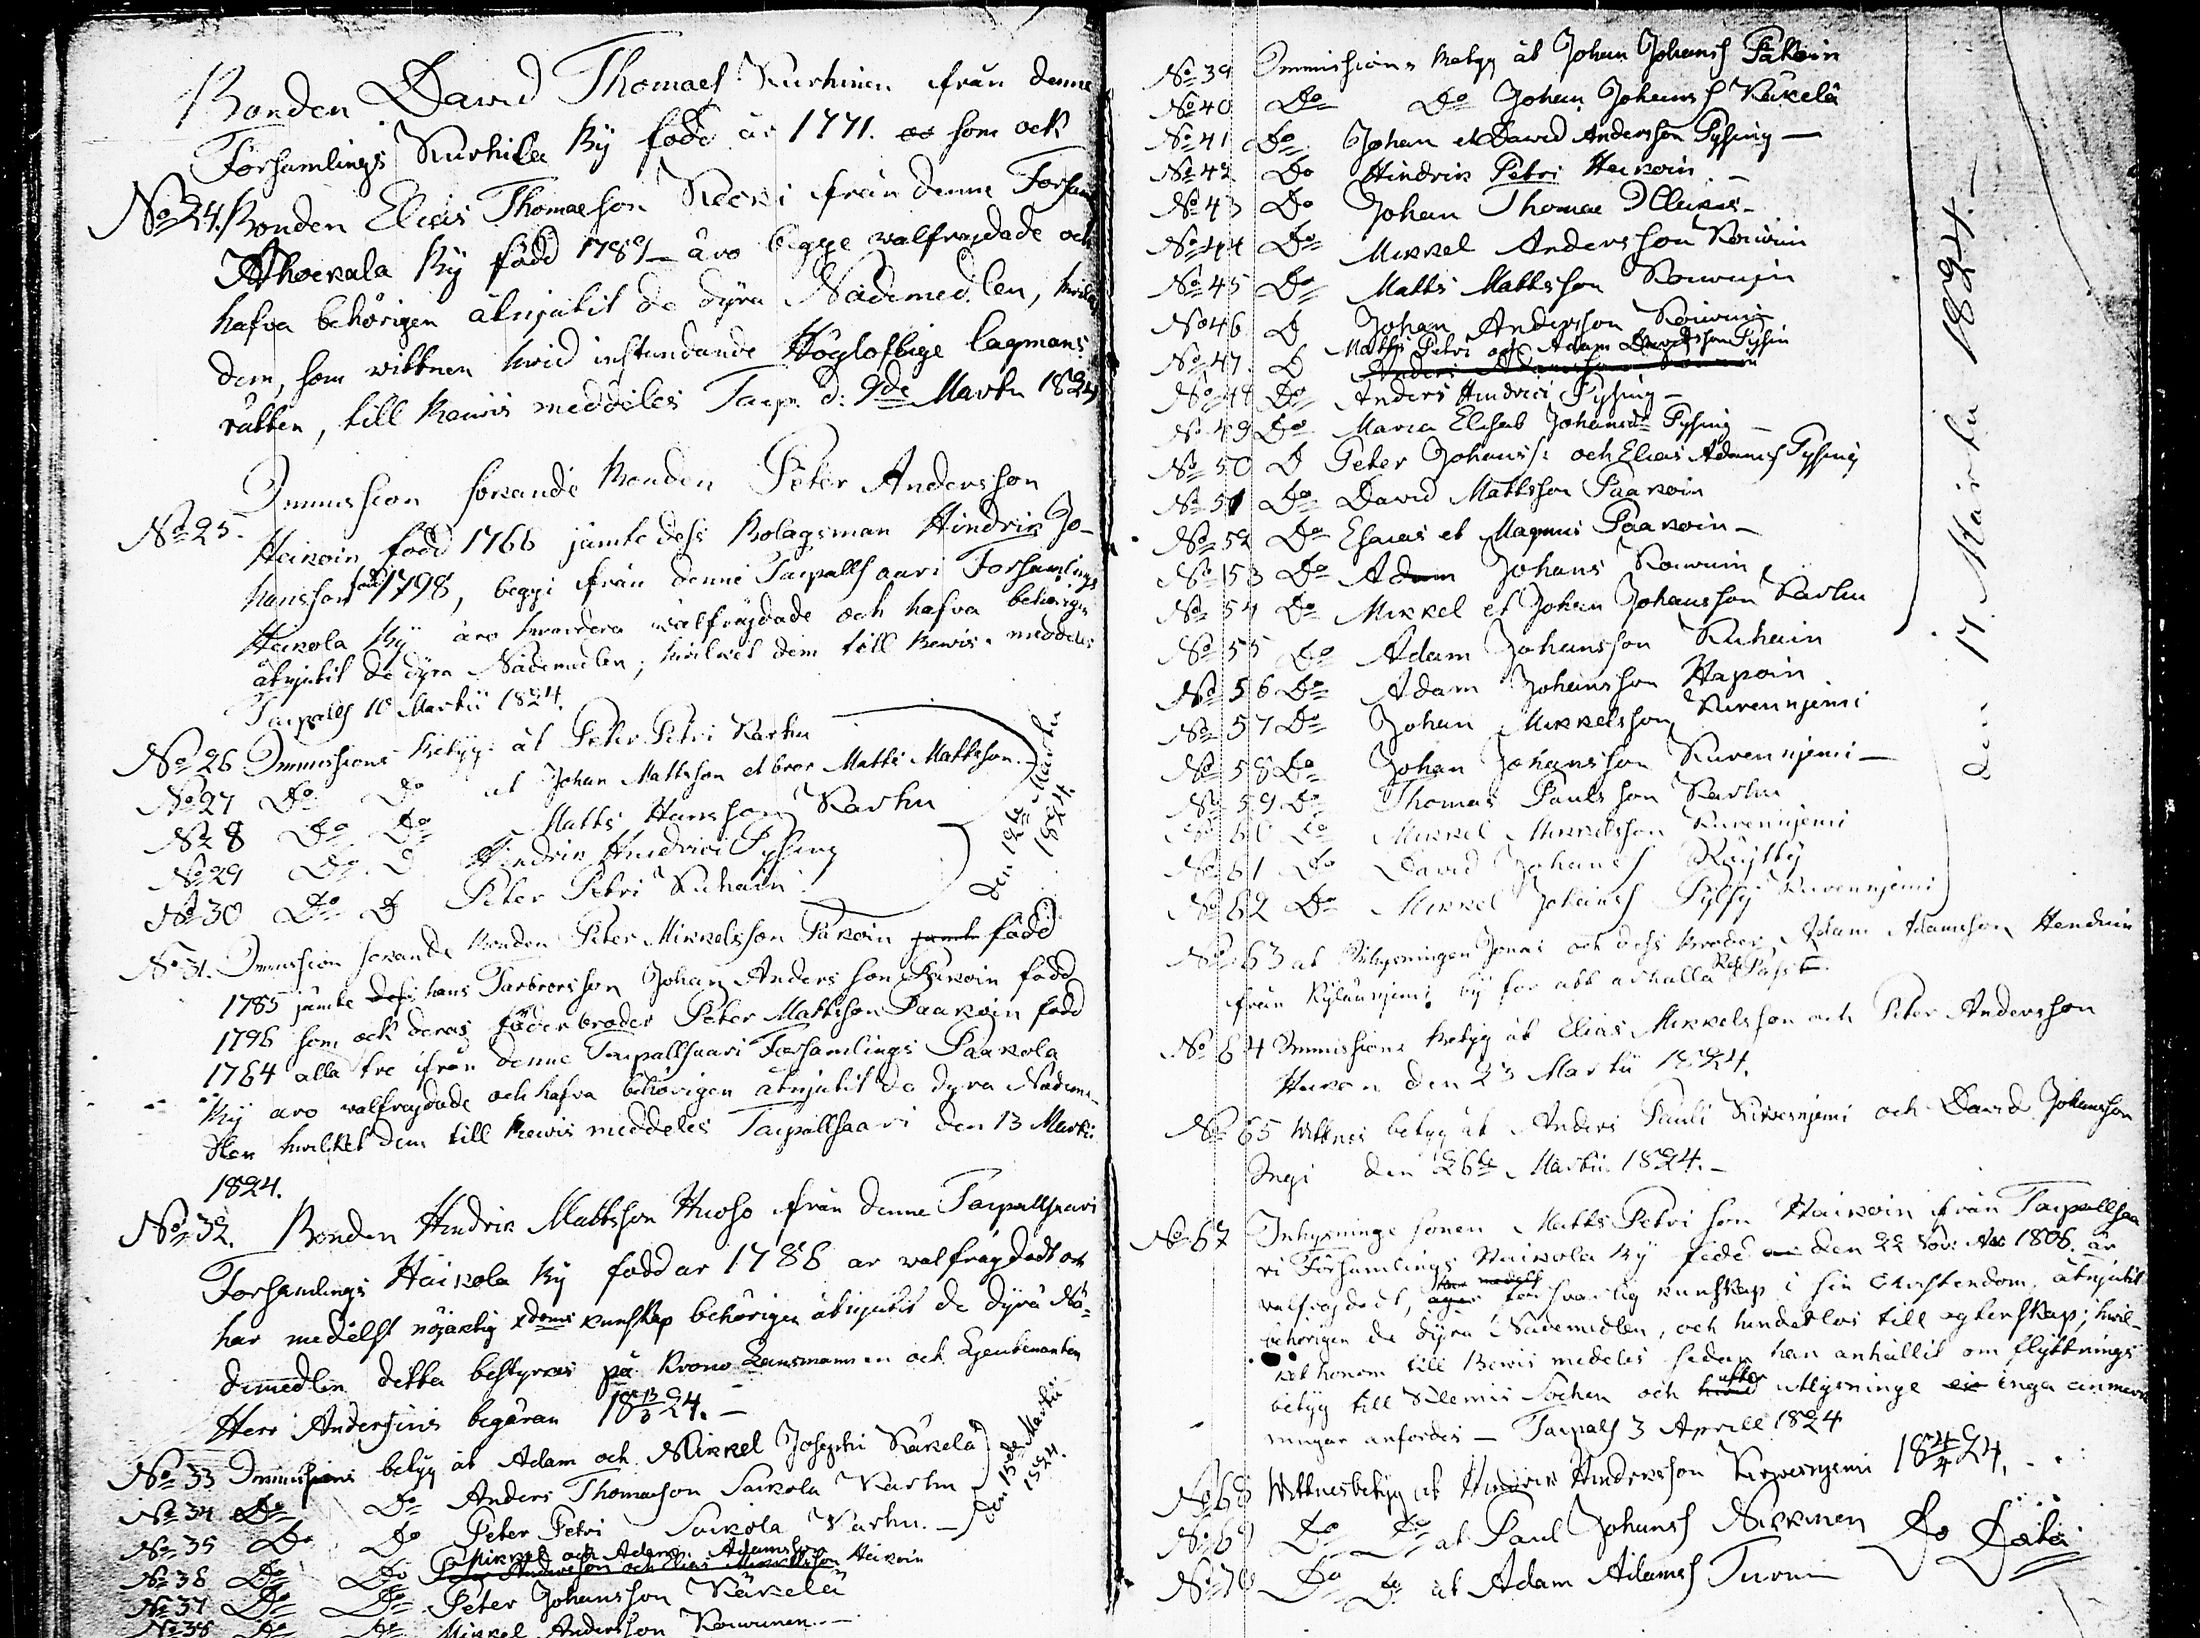 Bonden David Thomaes Kurhinen från denne
Forsamlings Kurhila By född år 1771. som ock
No 24. Bonden Elias Thomaeson Kocki från denne Forsam
Ahockala By född 1789 äro begge walfrajdade och
hafva behörigen åtnjutit de dyra Nådemedlen, hvilk
dem, som wittnen hwid instundande Högloflige lagmans
rätten, till Bewis meddeles Taip. d: 9de Martii 1824
Immission sökande Bonden Peter Andersson
No 25. Heikoin född 1766 jämte dess Bolagsman Hindrik Jo-
hansson född 1798, begge från denne Taipallsaari Forsamlings
Heikola By äro hwardera walfräjdade och hafva behörigen
åtnjutit de dyra Nådemedlen, hvilket dem till Bewis meddeles
Taipalls 10 Martii 1824.
No 26 Immissions Betyg åt Peter Petri Karhu
No 27 Do Do åt Johan Mattsson et bror Matts Mattsson.
No 28 Do Do Matts Hansson Karhu
No 29 Do D Hindrik Hindrici Pysing
No 30 Do D Peter Petri Kuhain
den 12te Martii
1824.
No 31. Immission sökande Bonden Peter Mikkelsson Pakoin jämte född
1785 jämte dess hans Farbrorsson Johan Andersson Pakoin född
1796 som ock deras fäderbroder Peter Mattsson Paakoin född
1764 alla tre ifrån denne Taipallsaari Forsamlings Paakola
By äro walfrajdade och hafva behörigen åtnjutit de dyra Nådeme-
dlen hwilket dem till Bewis meddeles Taipallsaari den 13 Martii
1824.
No 32. Bonden Hindrik Mattsson Huoso från denne Taipallsaari
Forsamlings Haikola By född ar 1786 är walfrägdadt och
har medelst nöjaktig xdoms kunskap behörigen åtnjutit de dyra Nå-
demedlen detta bestyrkes på Krono Lensmannen och Lyeutenanten
Herr Andersins begäran 18 13/3 24. -
No 33 Immissions betyg åt Adam och Mikkel Josephi Käkelä
No 34 Do Do Anders Thomaeson Saikola Karhu
No 35 Do Do Peter Petri Saikola Karhu. -
den 15de Martii
1824.
No 36 Do Do Mikkel och Adam Adamsson
Peter Andersson och Elias Mikkelsson Heikoin
No 37 Do Do Peter Johansson Käkelä
No 38 Do Do Mikkel Andersson Kouwunen -
No 39 Immissions Betyg åt Johan Johanss Pakoin
No 40 Do Do Johan Johanss Käkelä
No 41 Do Johan et David Andersson Pysing -
No 42 Do Hindrik Petri Heikoin -
No 43 Do Johan Thomae
No 44 Do Mikkel Andersson Kouwuin
No 45 Do Matts Mattsson Kouwuin
No 46 D Johan Andersson Kouwuin
No 47. D Matts Petri och Adam Davidsson Pysin
No 48 Do Anders Hindrici Pysing -
No 49 Do Maria Elisab Johansdr Pysing -
No 50 D Peter Johanss: och Elias Adamss Pysing
No 51 Do David Mattsson Paakoin
No 52 Do Esaias et Magnus Paakoin -
No 53 Do Adam Johans Kouwuin
No 54 Do Mikkel et Johan Johansson Karhu
No 55 Do Adam Johansson Kuhain
No 56 Do Adam Johansson Hapoin
No 57 Do Johan Mikkelsson Kurennjemi
No 58 Do Johan Johansson Kurennjemi -
No 59 Do Thomas Paulsson Karhu
No 60 Do Mikkel Mikkelsson Kurennjemi
No 61 Do David Johanss
No 62 Do Mikkel Johanss Pylsy Kurennjemi
den 17. Martii 1824. -
No 63 åt Inhysningen Jonas och dess Broder Adam Adamsson Hendunen
från Kyläänjemi by för att erhålla Res Passe.
No 64 Immissions Betyg åt Elias Mikkelsson och Peter Andersson
Heikoin den 23 Martii 1824.
No 65 Wittnes betyg åt Anders Pauli Kurennjemi och David Johansson
Ingi den 26te Martii 1824. -
No 67 Inhysninge sonen Matts Petri son Haikoin från Taipallsaa
ri Församlings Haikola By född den 22 Nov: 1806. är
walfrajdadt, har medelst äger försvarlig kunskap i sin Christendom, åtnjutit
behörigen de dyra Nådemedlen, och hinderlös till egtenskap; hvil-
ket honom till Bewis medeles sedan han anhållit om flyttnings
betyg till Klemis Sochen och hwid efter utlysninge inga einmer
ningar anfordes - Taipals 3 Aprill 1824
No 68 Wittnesbetyg åt Hindrik Hindersson Kurennjemi 18 4/4 24.
No 69 Do Do åt Paul Johanss Nikkinen Do Dato
No 70 Do Do åt Adam Adamss Turun